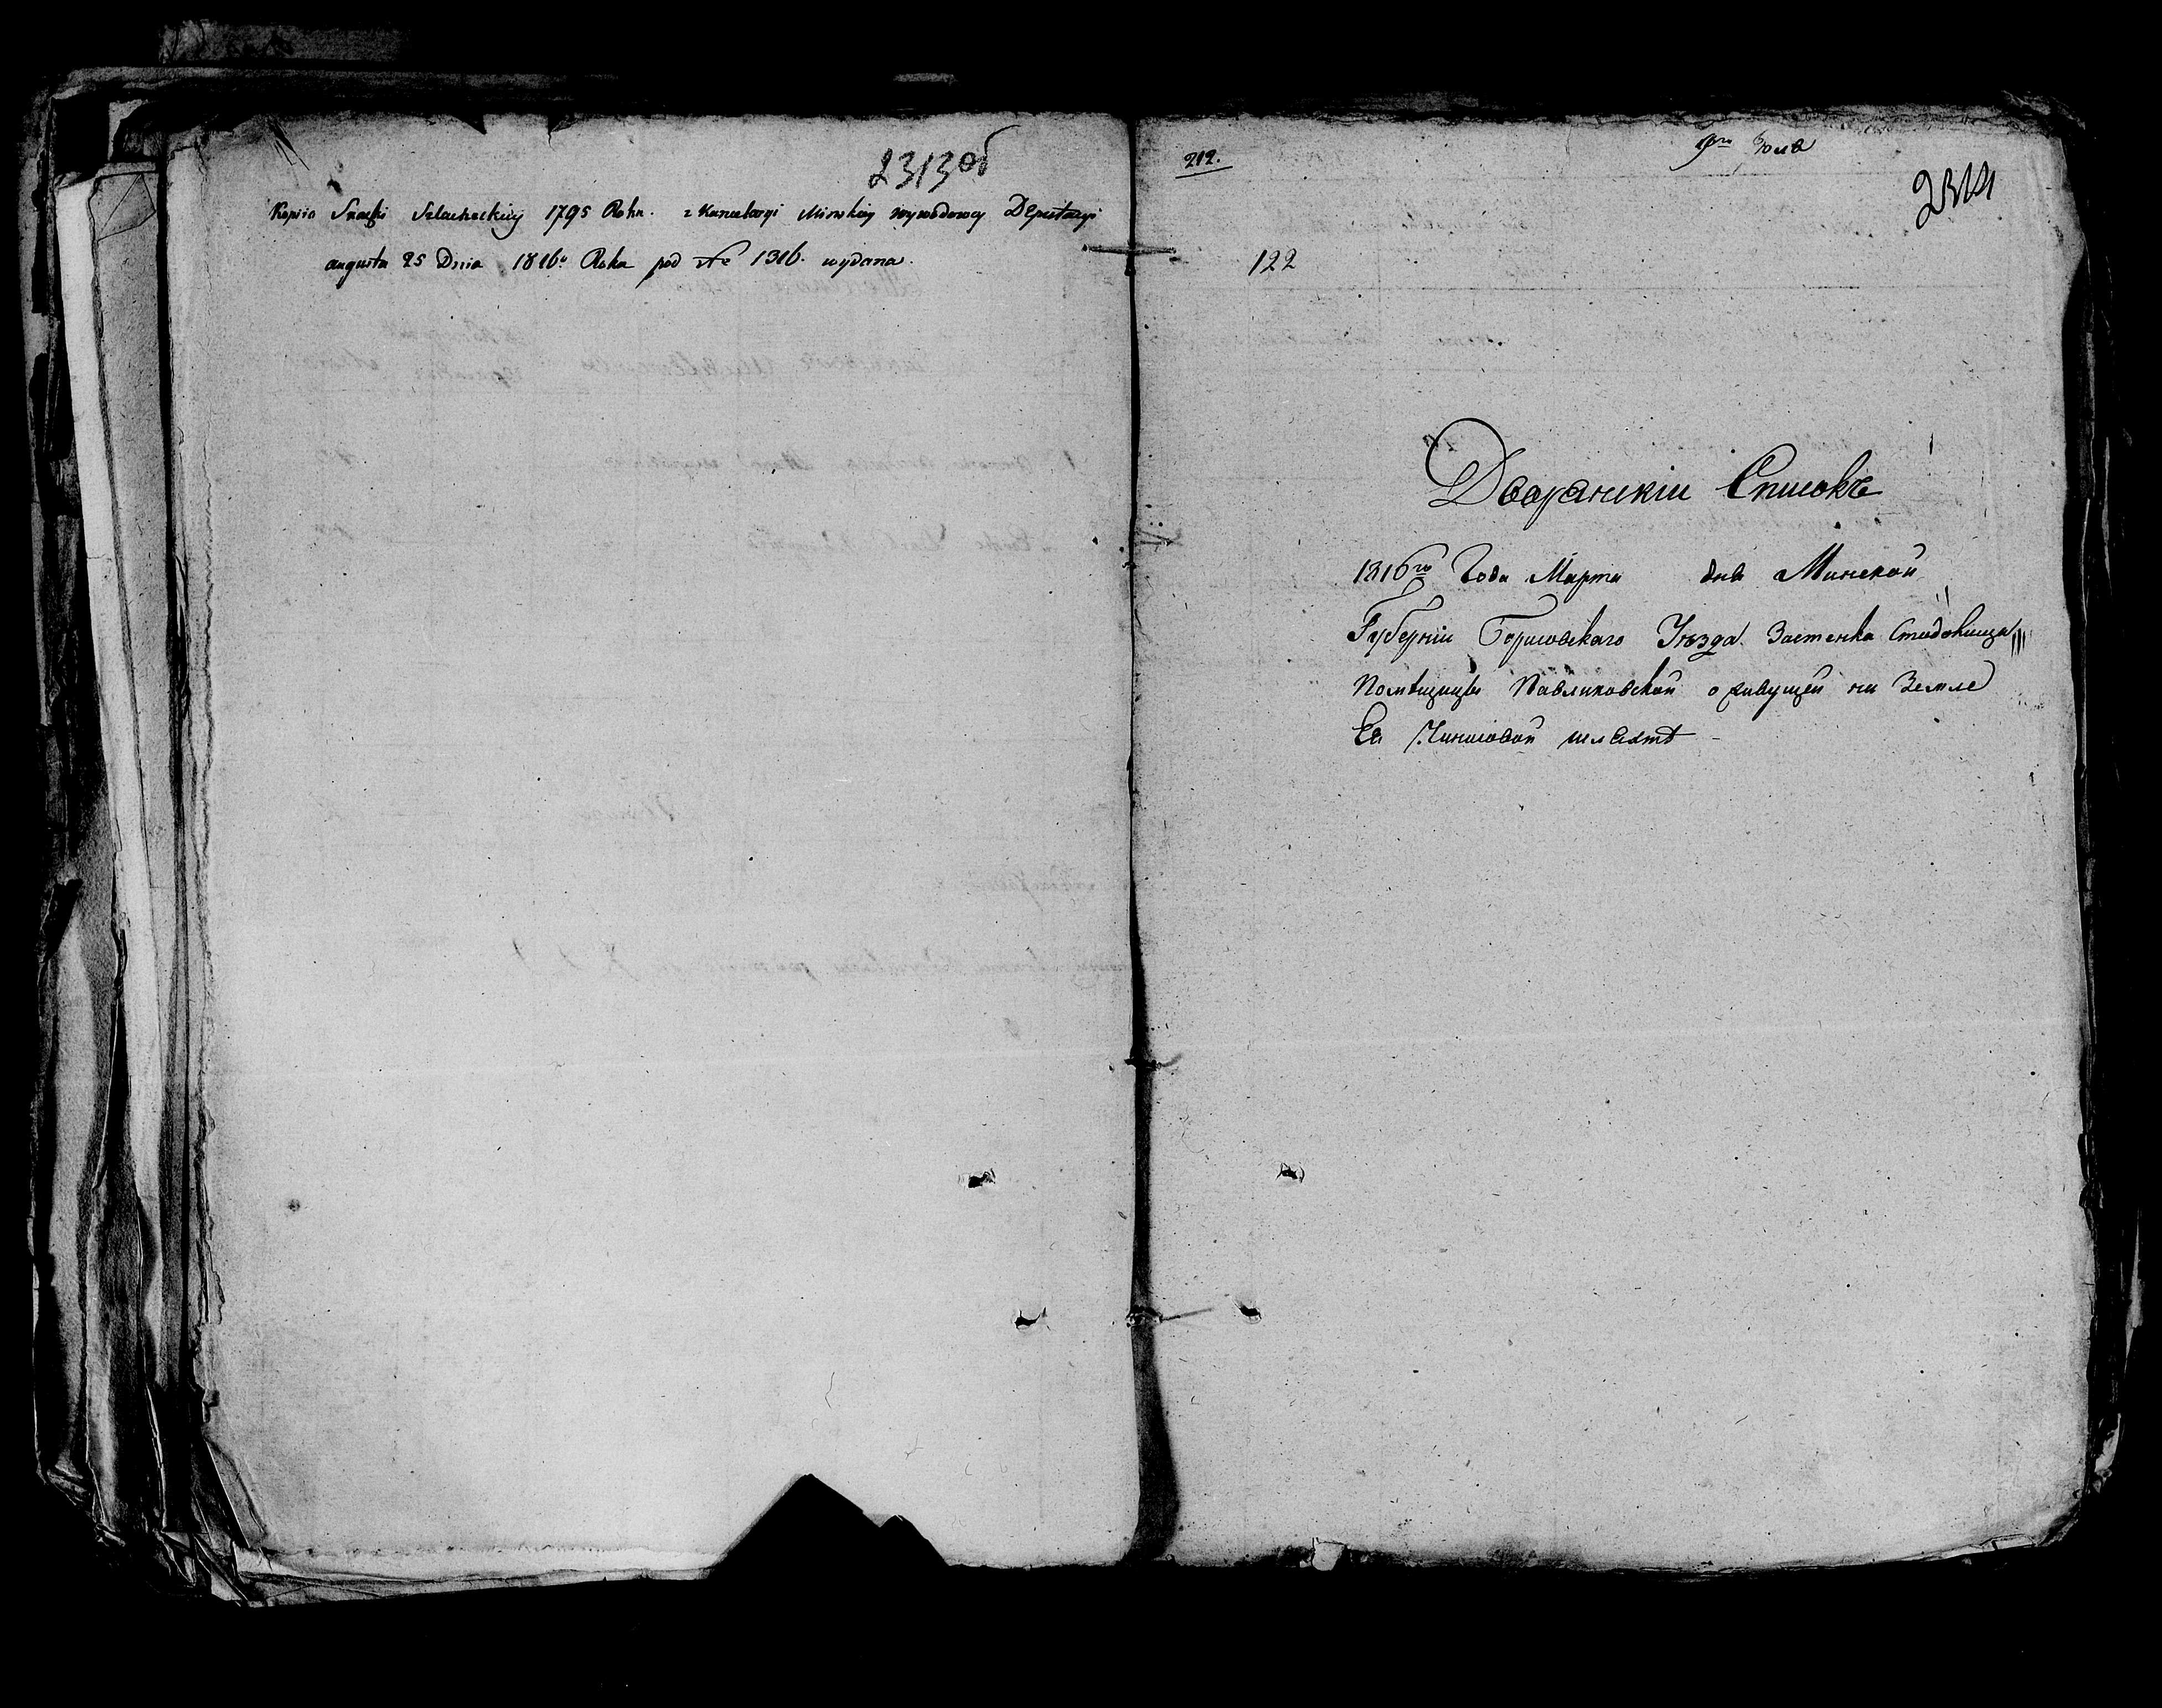 2313об
Kopiia Skaski Szlacheckiey 1795 Roku. z Kancelaryi Minskiey wywodowey Deputacyi
augusta 25 Dnia 1816º Roku pod № 1316. wydana.
212.
9го Июля
2314
122
Дворянскiи Списокъ
1816го Года Марта дня Минской
Губернiи Борисовскаго Уѣзда Застенка
Помѣщицы Павликовской о живущей на Земле
Ея Чиншовой шляхтѣ